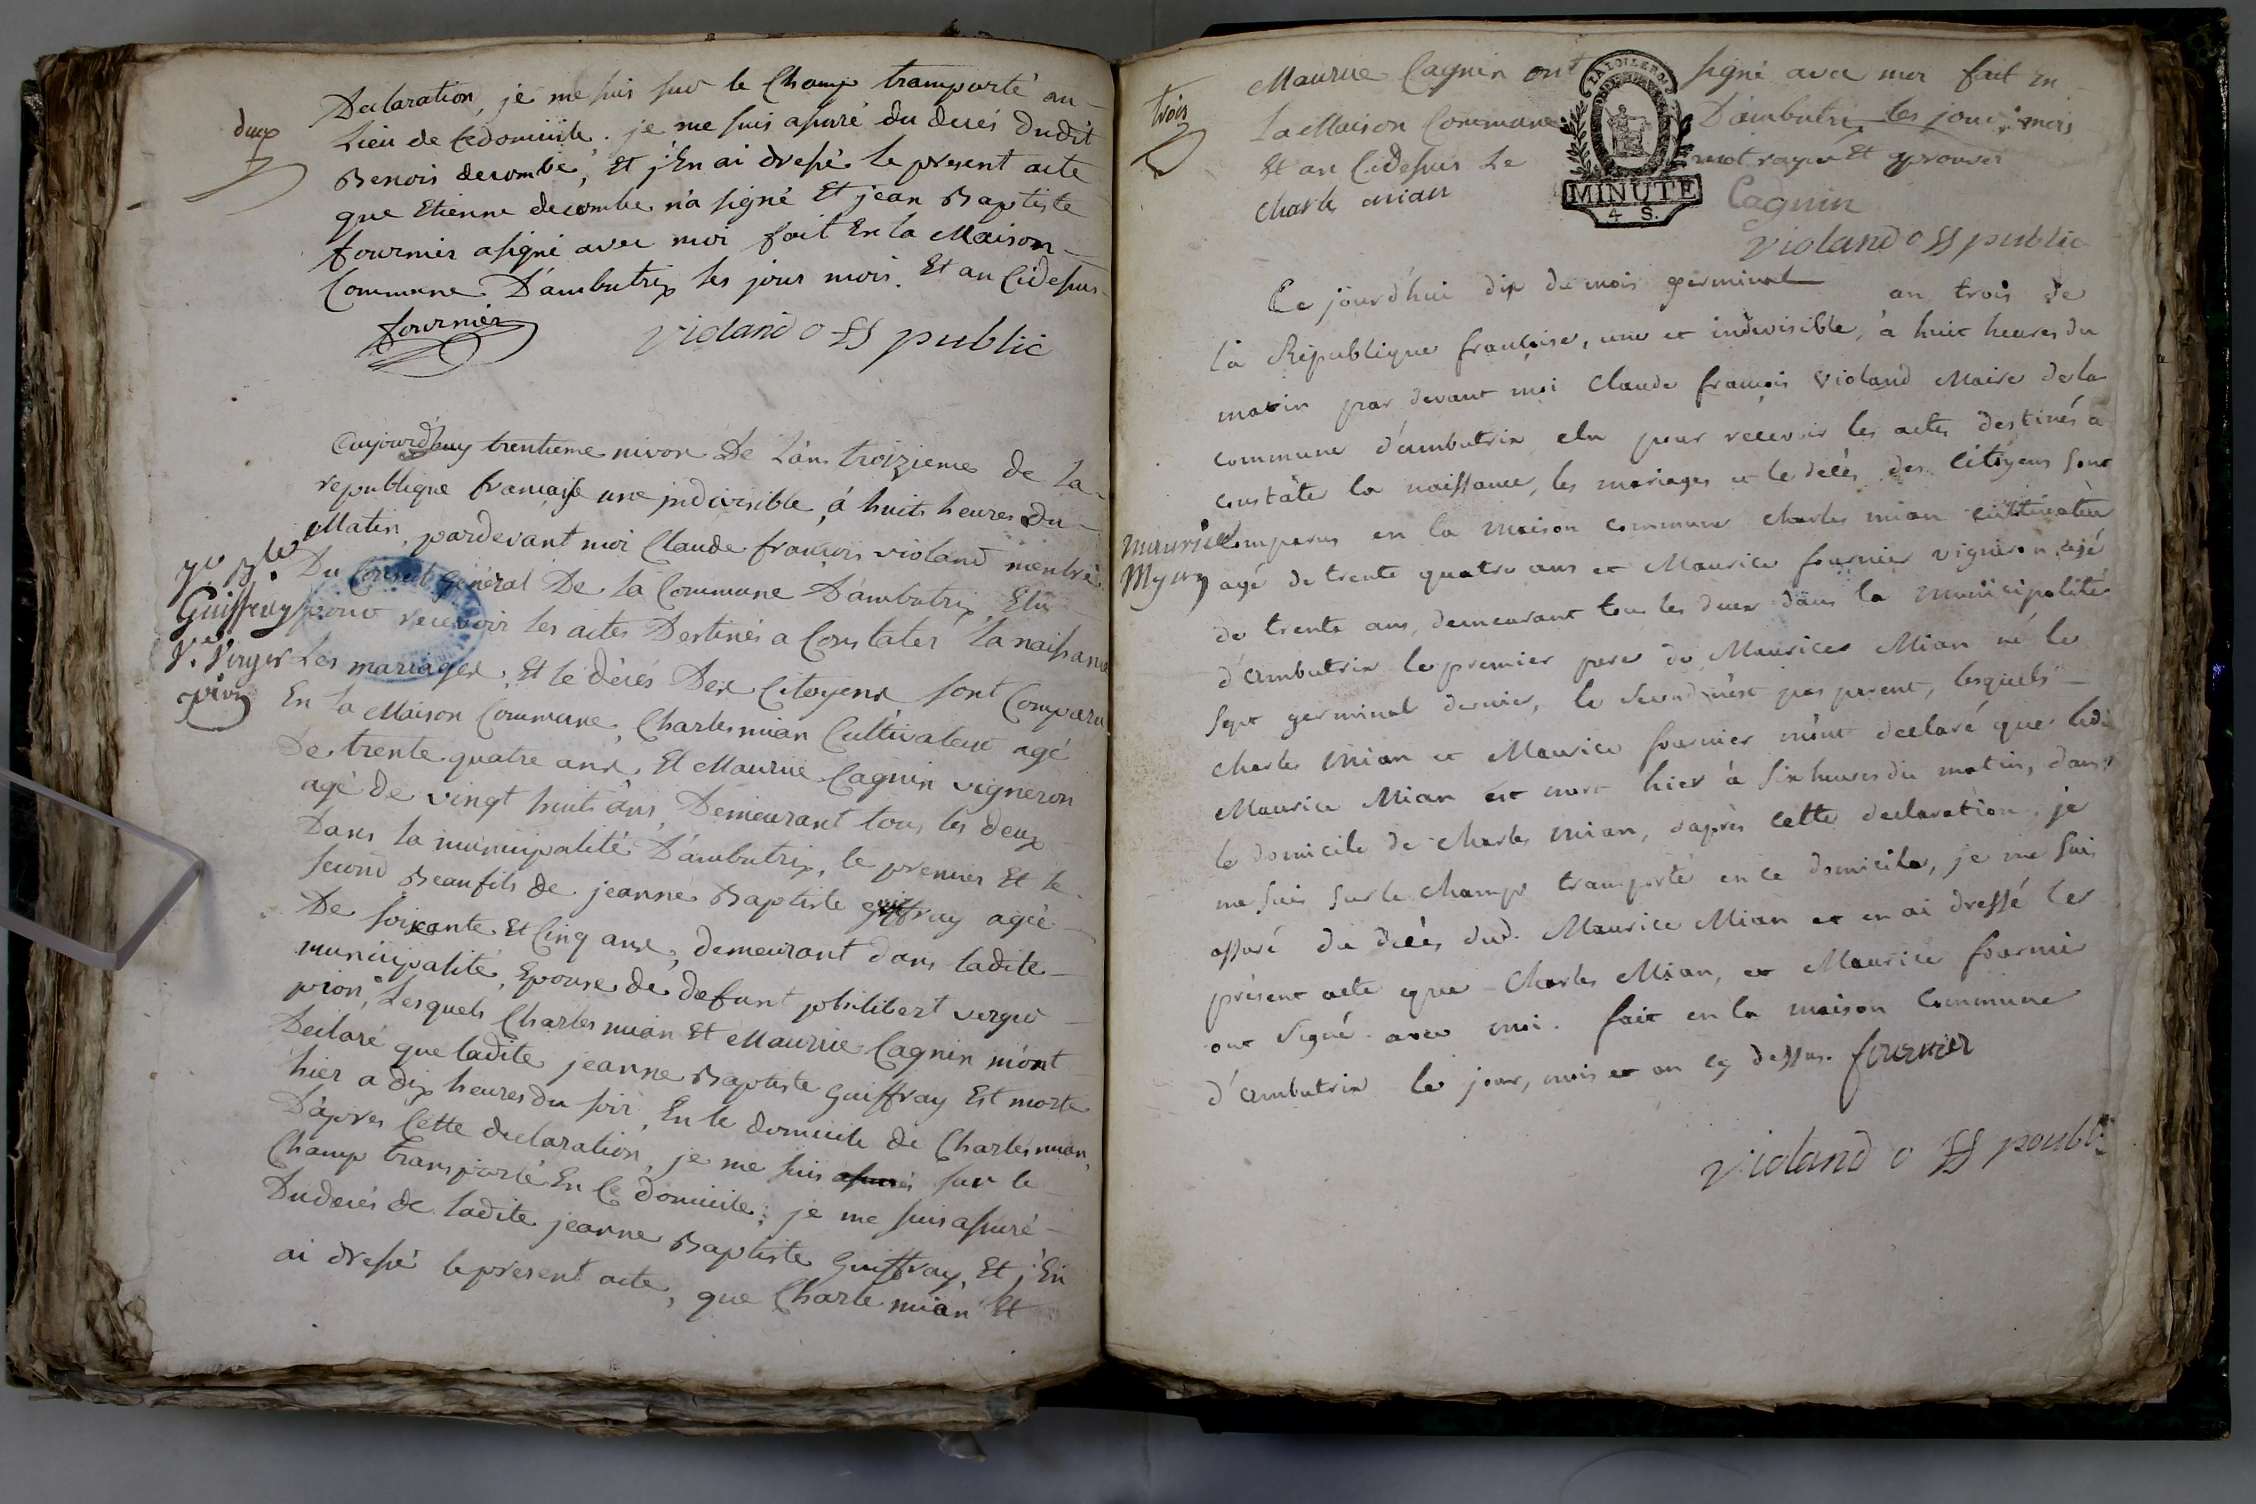 deux
Declaration, je me suis sur le Champ transporté au
Lieu de Ce domicile. je me suis assuré du decés dudit
Benois decombe, Et j'En ai dressé le present acte
que Etienne decombe n'a signé Et jean Baptiste
fournier a signé avec moi fait En la Maison
Commune D'ambutrix les jour mois. Et an Cidessus
fournier
violand off public
aujourdhuy trentieme nivos De L'an troizieme de La
republique francaise une indivisible, á huits heures Du
Matin, pardevant moi Claude francois violand membre
Du Conseil General De La Commune D'ambutrix Elu
pour recevoir les actes Destinés a Constater la naissance
Les mariages, Et le décés Des Citoyens sont Comparu
En La Maison Commune, Charles mian Cultivateur agé
De trente quatre ans, Et Maurice Cagnin vigneron
agé De vingt huits ans, Demeurant tous les deux
Dans la municipalité D'ambutrix, le premier Et le
second Beaufils de jeanne Baptiste guiffray agée
De soixante Et Cinq ans, demeurant dans ladite
municipalité, Epouse de defunt philibert verger
pion, Lesquels Charles mian Et Maurice Cagnin m'ont
Declaré que ladite jeanne Baptiste guiffray Est morte
hier a dix heures du soir, En le domicile de Charles mian,
D'apres Cette declaration, je me suis assurés sur le
Champ transporté En Ce domicile; je me suis assuré
Du decés de ladite jeanne Baptiste Guiffray, Et j'En
ai dressé le present acte, que Charle mian Et
Guiffray
Ve. Verger
pion
trois
Maurice Cagnin ont signé avec moi fait En
La Maison Commune D'ambutrix les jour, mois
Et an Cidessus Le mot rayé Et aprouvé
Charle mian Cagnin
violand off public
LA LOI LE ROI
MINUTE
4 S.
Ce jourd'hui dix du mois germinal an trois de
la République française, une et indivisible, à huit heures du
matin par devant moi Claude françois Violand Maire de la
commune d'ambutrix elu pour récevoir les actes destinés a
constâter la naissance, les mariages et le décès des Citoyens sont
Comparus en la maison commune charles mian cultivateur
agé de trente quatre ans et Maurice fournier vigneron agé
de trente ans, demeurant tou les deux dans la municipalité
d'ambutrix le premier pere de Maurice Mian né le
sept germinal dernier, le second n'est pas parent, lesquels
Charles Mian et Maurice fournier m'ont declaré que ledi
Maurice Mian est mort hier à six heures du matin, dans
le domicile de charles mian, d'après cette declaration, je
me suis sur le champ transporté en ce domicile, je me suis
assuré du décès dud. Maurice Mian et en ai dressé le
présent acte que Charles Mian, et Maurice fournier
ont signé avec moi. fait en la maison Commune
d'ambutrix le jour, mois et an cy dessus. fournier
violand off publi
maurice
Myan